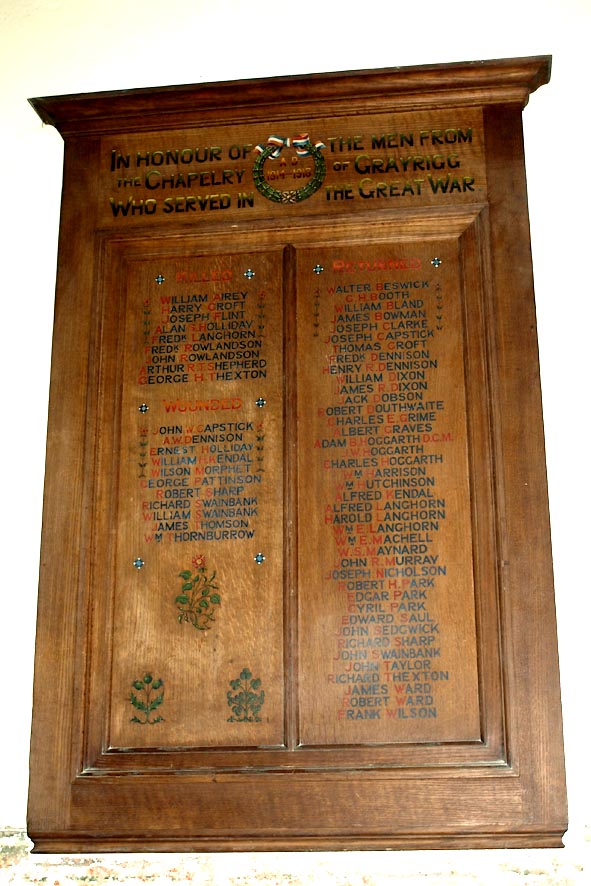 IN HONOUR OF THE MEN FROM
THE CHAPELRY OF GRAYRIGG
WHO SERVED IN THE GREAT WAR
A.D.
1914-1918
KILLED
WILLIAM AIREY
HARRY CROFT
JOSEPH FLINT
ALAN S. HOLLIDAY
FREDK LANGHORN
FREDK ROWLANDSON
JOHN ROWLANDSON
ARTHUR R.T. SHEPHERD
GEORGE H. THEXTON
WOUNDED
JOHN W. CAPSTICK
A.W. DENNISON
ERNEST HOLLIDAY
WILLIAM H. KENDAL
WILSON MORPHET
GEORGE PATTINSON
ROBERT SHARP
RICHARD SWAINBANK
WILLIAM SWAINBANK
JAMES THOMSON
WM THORNBURROW
RETURNED
WALTER BESWICK
C.H. BOOTH
WILLIAM BLAND
JAMES BOWMAN
JOSEPH CLARKE
JOSEPH CAPSTICK
THOMAS CROFT
FREDK DENNISON
HENRY R. DENNISON
WILLIAM DIXON
JAMES R. DIXON
JACK DOBSON
ROBERT DOUTHWAITE
CHARLES E. GRIME
ALBERT GRAVES
ADAM B. HOGGARTH D.C.M.
J.W. HOGGARTH
CHARLES HOGGARTH
WM HARRISON
WM HUTCHINSON
ALFRED KENDAL
ALFRED LANGHORN
HAROLD LANGHORN
WM E. LANGHORN
WM E. MACHELL
W.S. MAYNARD
JOHN R. MURRAY
JOSEPH NICHOLSON
ROBERT H. PARK
EDGAR PARK
CYRIL PARK
EDWARD SAUL
JOHN SEDGWICK
RICHARD SHARP
JOHN SWAINBANK
JOHN TAYLOR
RICHARD THEXTON
JAMES WARD
ROBERT WARD
FRANK WILSON